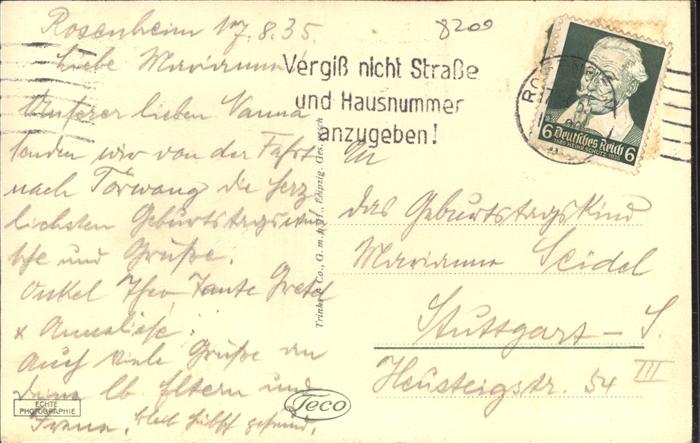 Rosenheim 17.8.35.
Liebe Marianne!
Unserer lieben Nanna
senden wir von der Fahrt
nach Törwang die herz
lichsten Geburtstagswün
sche und Grüße.
Onkel Theo Tante Gretel
x Anneliese.
Auch viele Grüße an
deine lb. Eltern und
Irene, bleib hübsch gesund.
ECHTE
PHOTOGRAPHIE
8209
Vergiß nicht Straße
und Hausnummer
anzugeben!
6 Deutsches Reich 6
1585 HEINR. SCHÜTZ 1935
Trinks & Co., G. m. b. H., Leipzig. Ges. gesch.
An
das Geburtstagskind
Marianne Seidel
Stuttgart-S.
Heusteigstr. 54 III
Teco